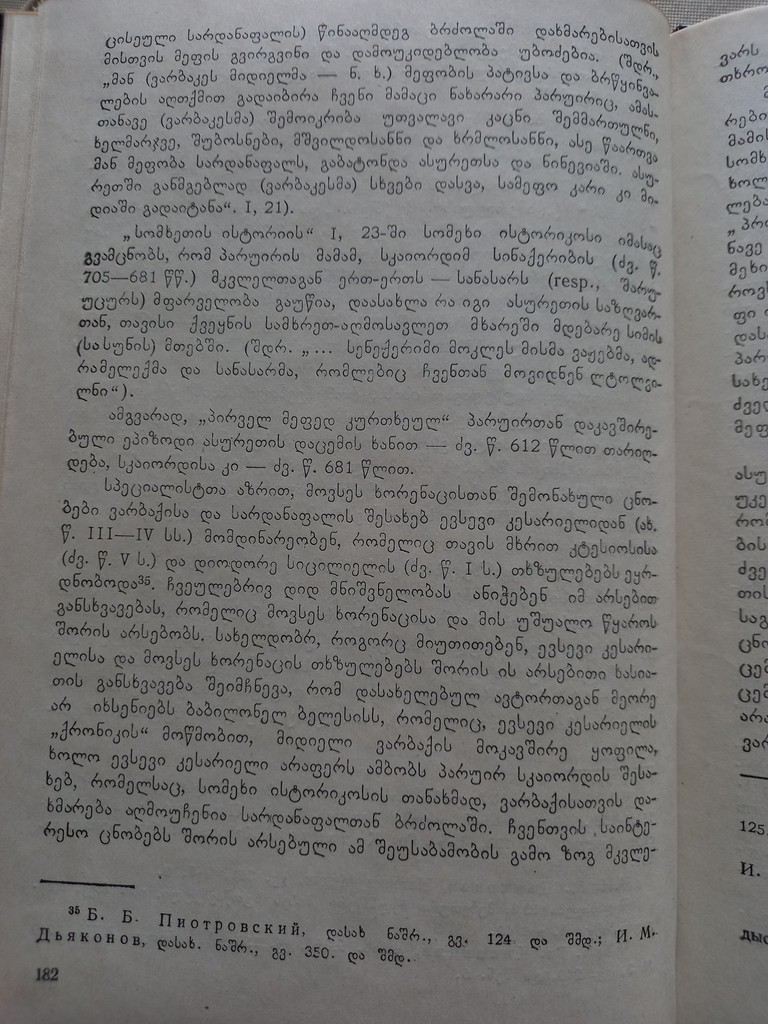 ცისეული სარდანაფალის) წინააღმდეგ ბრძოლაში დახმარებისათვის
მისთვის მეფის გვირგვინი და დამოუკიდებლობა უბოძებია. (შდრ.,
„მან (ვარბაკეს მიდიელმა — ნ. ხ.) მეფობის პატივსა და ბრწყინვა-
ლების აღთქმით გადაიბირა ჩვენი მამაცი ნახარარი პარუირიც, ამას-
თანავე (ვარბაკესმა) შემოიკრიბა უთვალავი კაცნი შემმართულნი,
ხელმარჯვე, შუბოსნები, მშვილდოსანნი და ხრმლოსანნი, ასე წაართვა
მან მეფობა სარდანაფალს, გაბატონდა ასურეთსა და ნინევიაში. ასუ-
რეთში განმგებლად (ვარბაკესმა) სხვები დასვა, სამეფო კარი კი მი-
დიაში გადაიტანა“. I, 21).
„სომხეთის ისტორიის“ I, 23-ში სომეხი ისტორიკოსი იმასაც
გვამცნობს, რომ პარუირის მამამ, სკაიორდიმ სინაქერიბის (ძვ. წ.
705—681 წწ.) მკვლელთაგან ერთ-ერთს — სანასარს (resp., შარუ-
უცურს) მფარველობა გაუწია, დაასახლა რა იგი ასურეთის საზღვარ-
თან, თავისი ქვეყნის სამხრეთ-აღმოსავლეთ მხარეში მდებარე სიმის
(სასუნის) მთებში. (შდრ. „... სენექერიმი მოკლეს მისმა ვაჟებმა, ად-
რამელექმა და სანასარმა, რომლებიც ჩვენთან მოვიდნენ ლტოლვი-
ლნი“).
ამგვარად, „პირველ მეფედ კურთხეულ“ პარუირთან დაკავშირე-
ბული ეპიზოდი ასურეთის დაცემის ხანით — ძვ. წ. 612 წლით თარიღ-
დება, სკაიორდისა კი — ძვ. წ. 681 წლით.
სპეციალისტთა აზრით, მოვსეს ხორენაცისთან შემონახული ცნო-
ბები ვარბაქისა და სარდანაფალის შესახებ ევსევი კესარიელიდან (ახ.
წ. III—IV სს.) მომდინარეობენ, რომელიც თავის მხრით კტესიოსისა
(ძვ. წ. V ს.) და დიოდორე სიცილიელის (ძვ. წ. I ს.) თხზულებებს ეყრ-
დნობოდა³⁵. ჩვეულებრივ დიდ მნიშვნელობას ანიჭებენ იმ არსებით
განსხვავებას, რომელიც მოვსეს ხორენაცისა და მის უშუალო წყაროს
შორის არსებობს. სახელდობრ, როგორც მიუთითებენ, ევსევი კესარი-
ელისა და მოვსეს ხორენაცის თხზულებებს შორის ის არსებითი ხასია-
თის განსხვავება შეიმჩნევა, რომ დასახელებულ ავტორთაგან მეორე
არ იხსენიებს ბაბილონელ ბელესისს, რომელიც, ევსევი კესარიელის
„ქრონიკის“ მოწმობით, მიდიელი ვარბაქის მოკავშირე ყოფილა,
ხოლო ევსევი კესარიელი არაფერს ამბობს პარუირ სკაიორდის შესა-
ხებ, რომელსაც, სომეხი ისტორიკოსის თანახმად, ვარბაქისათვის და-
ხმარება აღმოუჩენია სარდანაფალთან ბრძოლაში. ჩვენთვის საინტე-
რესო ცნობებს შორის არსებული ამ შეუსაბამობის გამო ზოგ მკვლე-
³⁵ Б. Б. Пиотровский, დასახ ნაშრ., გვ. 124 და შმდ.; И. М.
Дьяконов, დასახ. ნაშრ., გვ. 350. და შმდ.
182
ვარს
თხრო
რები
მამის
სომხ
ხოლ
ლება
„პრ
ნავე
მეხი
როვს
ფი
დას
პარ
სახე
ძველ
მეფ
ასუ
უკე
რომ
ბის
ძვე
თის
საგ
ცნო
ცემ
ცემ
არა
ვარ
125.
И.
дыс